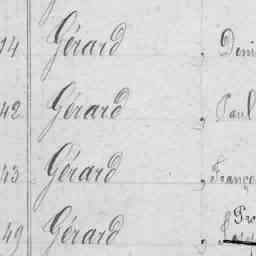 14 Gérard , Deni
42 Gérard , Paul
43 Gérard , Franço
49 Gérard ,